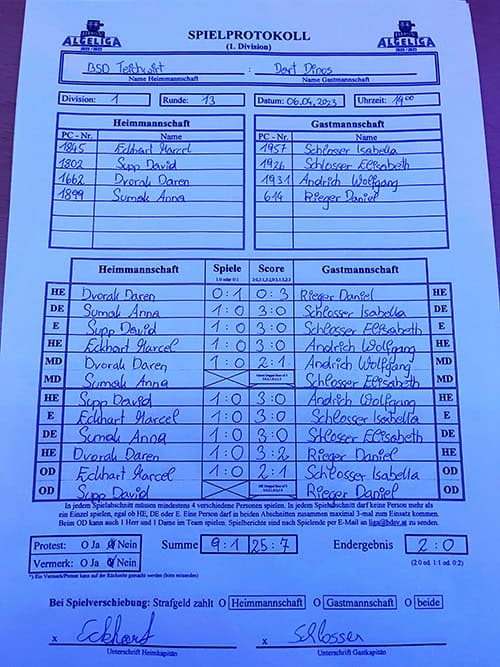 ALGELIGA SPIELPROTOKOLL ALGELIGA
2022 / 2023 (1. Division) 2022 / 2023
BSD Teichwirt : Dart Dinos
Name Heimmannschaft Name Gastmannschaft
Division: 1 Runde: 13 Datum: 06.04.2023 Uhrzeit: 19:00
Heimmannschaft Gastmannschaft
PC - Nr. Name PC - Nr. Name
1845 Eckhart Marcel 1957 Schlosser Isabella
1802 Supp David 1926 Schlosser Elisabeth
1662 Dvorak Daren 1931 Andrich Wolfgang
1899 Sumak Anna 614 Rieger Daniel
Heimmannschaft Spiele Score Gastmannschaft
1:0 oder 0:1
HE Dvorak Daren 0:1 0:3 Rieger Daniel HE
DE Sumak Anna 1:0 3:0 Schlosser Isabella DE
E Supp David 1:0 3:0 Schlosser Elisabeth E
HE Eckhart Marcel 1:0 3:0 Andrich Wolfgang HE
MD Dvorak Daren 1:0 2:1 Andrich Wolfgang MD
MD Sumak Anna Schlosser Elisabeth MD
HE Supp David 1:0 3:0 Andrich Wolfgang HE
E Eckhart Marcel 1:0 3:0 Schlosser Isabella E
DE Sumak Anna 1:0 3:0 Schlosser Elisabeth DE
HE Dvorak Daren 1:0 3:2 Rieger Daniel HE
OD Eckhart Marcel 1:0 2:1 Schlosser Isabella OD
OD Supp David Rieger Daniel OD
In jedem Spielabschnitt müssen mindestens 4 verschiedene Personen spielen. In jedem Spielabschnitt darf keine Person mehr als
ein Einzel spielen, egal ob HE, DE oder E. Eine Person darf in beiden Abschnitten zusammen maximal 3-mal zum Einsatz kommen.
Beim OD kann auch 1 Herr und 1 Dame im Team spielen. Spielberichte sind nach Spielende per E-Mail an liga@bdsv.at zu senden.
Protest: O Ja O Nein Summe 9:1 25:7 Endergebnis 2:0
Vermerk: O Ja O Nein (2:0 od. 1:1 od. 0:2)
*) Ein Vermerk/Protest kann auf der Rückseite gemacht werden (bitte ankreuzen)
Bei Spielverschiebung: Strafgeld zahlt O Heimmannschaft O Gastmannschaft O beide
x Eckhart x Schlosser
Unterschrift Heimkapitän Unterschrift Gastkapitän